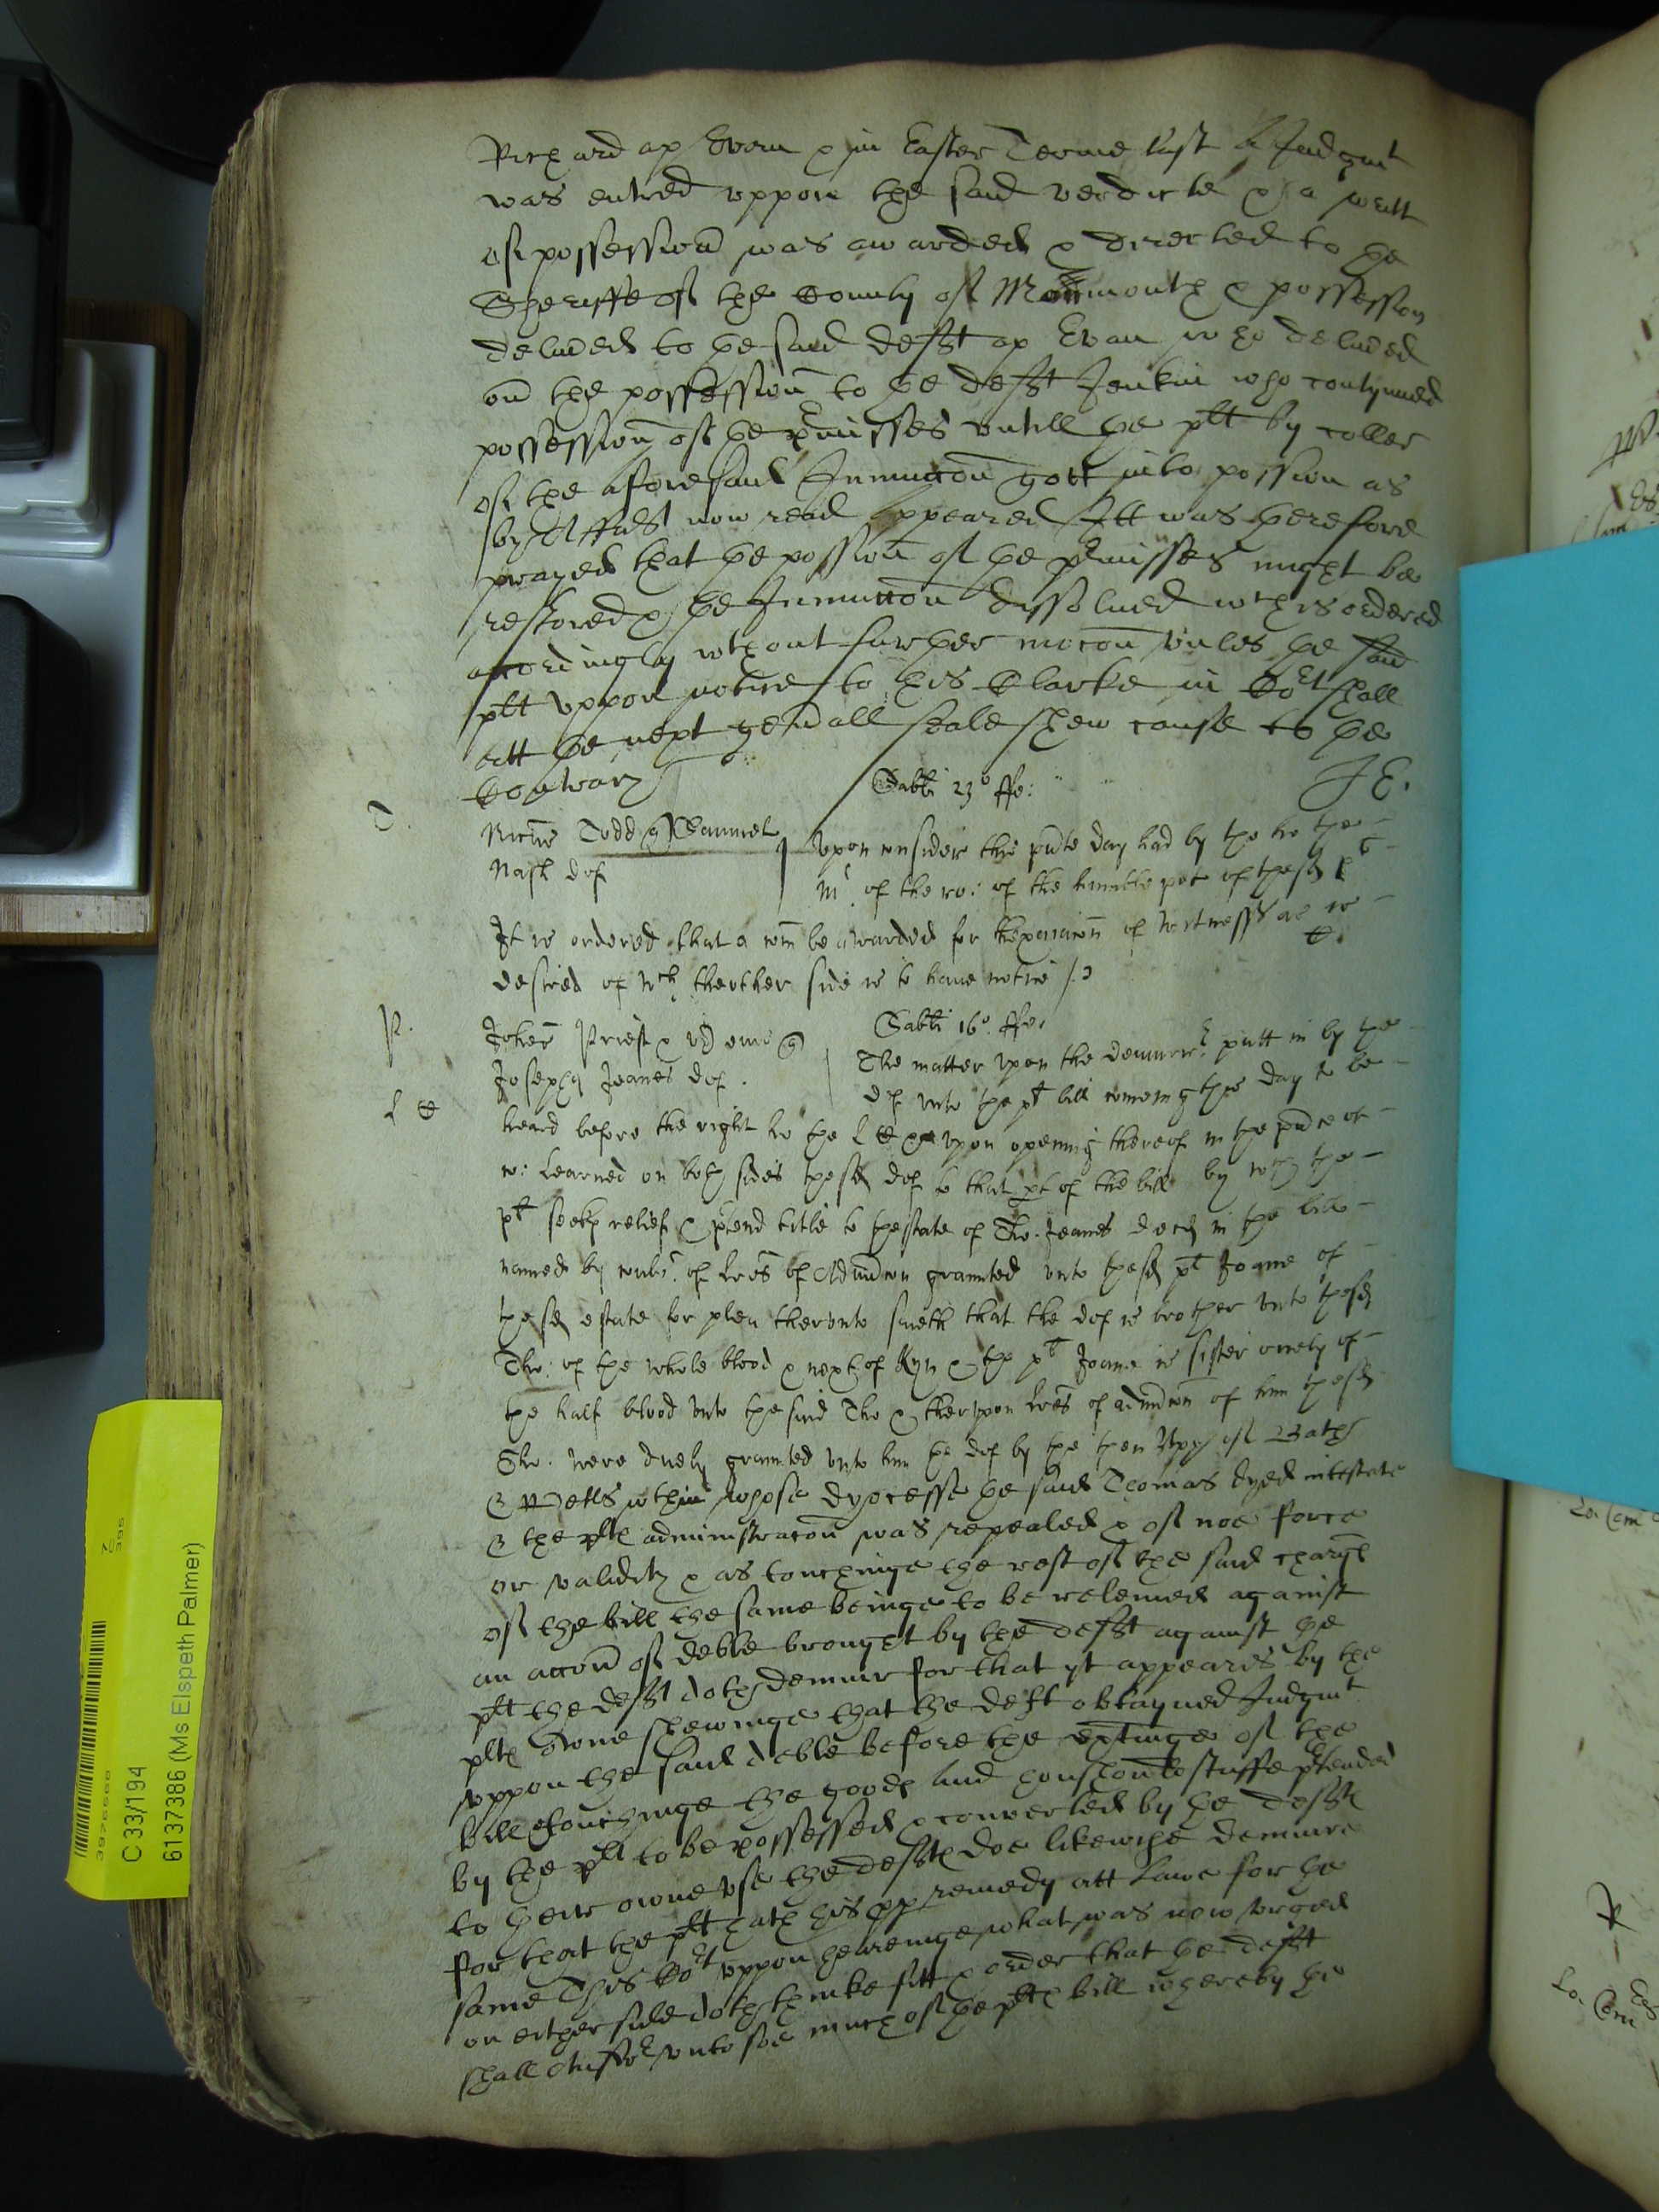 Richard ap Evan & in Easter Terme last a Judgmt
was entred uppon the said verdicte & a writt
of possession was awarded & directed to the
Sheriffe of the County of Monmouth & possession
delivered to the said deft ap Evan who delivered
on the possession to the deft Jenkin who contynued
possession of the pmisses untill the plt by coller
of the aforesaid Injunccon gott into possion as
by Affidt now read appeared Itt was therefore
prayed that the possion of the pmisses might be
restored & the Injunccon dissolved wch is ordered
accordingly wthout further mocon unles the said
plt uppon notice to his Clarke in Cort shall
att the next gen'all seale shew cause to the
Contrary
Sabti 23o ffe:
J E.
T.
Todd q Samuel
Nash def
Upon consider this pnte day had by the ho the
Mr of the ro: of the humble pet of thesd pt
It is ordered that a com be awarded for thexaiacon of witnesses as is
desired of wch thother side is to have notice
C.
P.
Sabti 16o ffe:
Johes Priest & ux eius q
Joseph Jeanes def.
The matter upon the demurrer putt in by the
def unto the plt bill coming this day to be
L C
heard before the right ho the L C & upon opening thereof in the pnce of
co: learned on both sides thesd def to that pt of the bill by wch the
pt seeks relief & ptend title to thestate of Tho. Jeanes decd in the bill
named by of lres of Admcon graunted unto thesd pt Joane of
thesd estate for plea therunto saieth that the def is brother unto thesd
Tho: of the whole blood & next of kyn & the pt Joane is sister onely of
the half blood unto the said Tho & therupon lres of admcon of him thesd
Tho. were duely graunted unto him the def by the then Bpp of Bath
& Wells wthin whose dyocesse the said Thomas dyed intestate
& the plts administracon was repealed & of noe force
or validity & as touchinge the rest of the said charge
of the bill the same beinge to be releived against
an accon of debte brought by the deft against the
plt the deft doth demurr for that yt appeares by the
plts owne shewinge that the deft obtayned Judgmt
uppon the said debte before the exhibitinge of the
bill & touchinge the goods and houshould stuffe ptended
by the plt to be possessed & converted by the defts
to their owne use the defts doe likewise demurre
for that the plt hath his pp remedy att lawe for the
same This Cort uppon hearinge what was now urged
on either side doth thinke fitt & order that the deft
shall answer unto soe much of the plts bill whereby he
3976566
C 33/194
6137386 (Ms Elspeth Palmer)